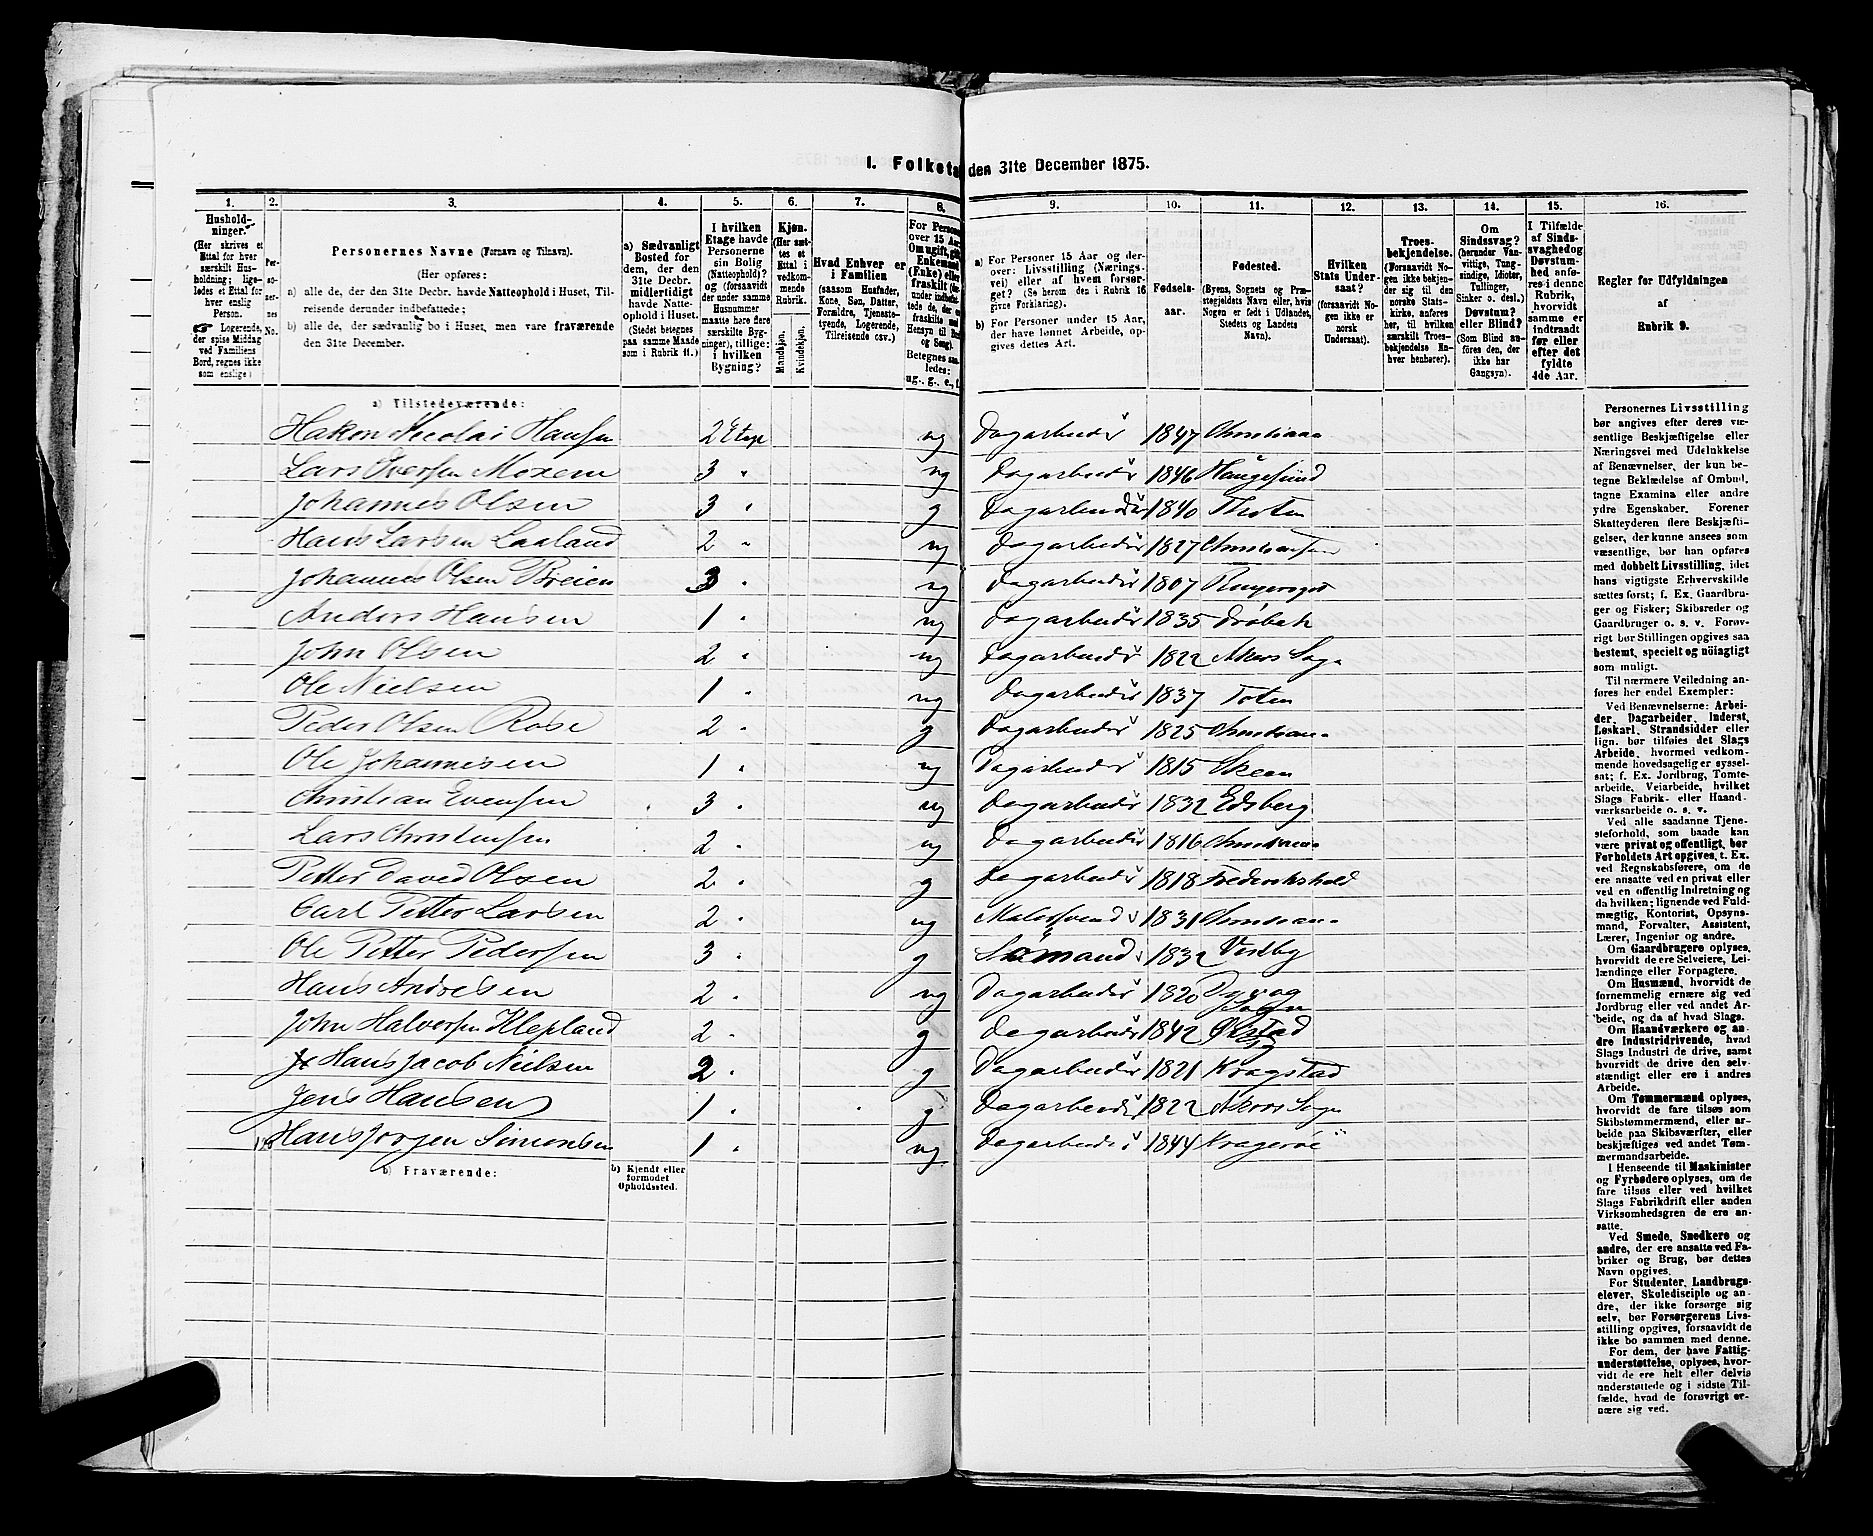 I. Folketal den 31te December 1875.
1. 2. 3. 4. 5. 6. 7. 8. 9. 10. 11. 12. 13. 14. 15. 16.
Hushold-
ninger.
(Her skrives et
Ettal for hver
særskilt Hus-
holdning; lige-
ledes et Ettal for
hver enslig
Person.
☞ Logerende,
der spise Middag
ved Familiens
Bord, regnes ikke
som enslige.)
Personernes No.
Personernes Navne (Fornavn og Tilnavn).
(Her opføres:
a) alle de, der den 31te Decbr. havde Natteophold i Huset, Til-
reisende derunder indbefattede;
b) alle de, der sædvanlig bo i Huset, men vare fraværende
den 31te December.
a) Sædvanligt
Bosted for
dem, der den
31te Decbr.
midlertidigt
havde Natte-
ophold i Huset.
(Stedet betegnes
paa samme Maade
som i Rubrik 11.)
I hvilken
Etage havde
Personerne
sin Bolig
(Natteophold)?
og (forsaavidt
der under samme
Husnummer
maatte høre flere
særskilte Byg-
ninger), tillige:
i hvilken
Bygning?
Kjøn.
(Her sæt-
tes et
Ettal i
vedkom-
mende
Rubrik.
Mandkjøn.
Kvindekjøn.
Hvad Enhver er
i Familien
(saasom Husfader,
Kone, Søn, Datter,
Forældre, Tjeneste-
tyende, Logerende,
Tilreisende osv.)
For Personer
over 15 Aar:
Om ugift, gift,
Enkemand
(Enke) eller
fraskilt
Betegnes saa-
ledes:
ug., g., e., f.
a) For Personer 15 Aar og der-
over: Livsstilling (Nærings-
vei) eller af hvem forsør-
get? (Se herom den i Rubrik 16
givne Forklaring).
b) For Personer under 15 Aar,
der have lønnet Arbeide, op-
gives dettes Art.
Fødsels-
aar.
Fødested.
(Byens, Sognets og Præ-
stegjeldets Navn eller, hvis
Nogen er født i Udlandet,
Stedets og Landets
Navn).
Hvilken
Stats Under-
saat?
(forsaavidt No-
gen ikke er
norsk
Undersaat).
Troes-
bekjendelse.
(Forsaavidt No-
gen ikke bekjen-
der sig til den
norske Stats-
kirke, anføres
her, til hvilken
særskilt Troes-
bekjendelse En-
hver henhører).
Om
Sindssvag?
(herunder Van-
vittige, Tung-
sindige, Idioter,
Tullinger,
Sinker o. desl.)
Døvstum?
eller Blind?
(Som Blind an-
føres den, der
ikke har
Gangsyn).
I Tilfælde
af Sinds-
svaghed og
Døvstum-
hed anfø-
res i denne
Rubrik,
hvorvidt
samme er
indtraadt
før eller
efter det
fyldte
4de Aar.
Regler for Udfyldningen
af
Rubrik 9.
a) Tilstedeværende:
Hakon Nicolai Hansen 2 Etage ug Dagarbeider 1847 Christiania
Lars Iversen Moxem 3 " ug Dagarbeider 1846 Haugesund
Johannes Olsen 3 " g Dagarbeider 1840 Thoten
Hans Larsen Laaland 2 " ug Dagarbeider 1827
Johannes Olsen Breien 3 " ug Dagarbeider 1807
Anders Hansen 1 " ug Dagarbeider 1835 Drøbak
John Olsen 2 " ug Dagarbeider 1822 Akers Sogn
Ole Nielsen 1 " ug Dagarbeider 1837 Toten
Peder Olsen Rose 2 " g Dagarbeider 1825 Christiania
Ole Johannesen 1 " ug Dagarbeider 1815 Skeen
Christian Evensen 3 " ug Dagarbeider 1832 Edsberg
Lars Christensen 2 " ug Dagarbeider 1816 Christiania
Petter David Olsen 2 " g Dagarbeider 1818 Frederikshald
Carl Petter Larsen 2 " ug Malersvend 1831 Christiania
Ole Petter Pedersen 3 " g Sømand 1832 Vestby
Hans Andresen 2 " ug Dagarbeider 1820 Dyvog Sogn
John Halvorsen Klepland 2 " g Dagarbeider 1842
Hans Jacob Nielsen 2 " g Dagarbeider 1821 Kragstad
Jens Hansen 1 " g Dagarbeider 1822 Akers Sogn
Hans Jørgen Simonsen 1 " ug Dagarbeider 1844 Kragerøe
b) Fraværende:
b) Kjendt eller
formodet
Opholdssted.
Personernes Livsstilling
bør angives efter deres væ-
sentlige Beskjæftigelse eller
Næringsvei med Udelukkelse
af Benævnelser, der kun be-
tegne Beklædelse af Ombud,
tagne Examina eller andre
ydre Egenskaber. Forener
Skatteyderen flere Beskjæfti-
gelser, der kunne ansees som
væsentlige, bør han opføres
med dobbelt Livsstilling, idet
hans vigtigste Erhvervskilde
sættes først; f. Ex. Gaardbru-
ger og Fisker; Skibsreder og
Gaardbruger o. s. v. Forøv-
rigt bør Stillingen opgives saa
bestemt, specielt og nöiagtigt
som muligt.
Til nærmere Veiledning an-
føres her endel Exempler:
Ved Benævnelserne: Arbei-
der, Dagarbeider, Inderst,
Løskarl, Strandsidder eller
lign. bør tilføies det Slags
Arbeide, hvormed vedkom-
mende hovedsagelig er syssel-
sat; f. Ex. Jordbrug, Tomte-
arbeide, Veiarbeide, hvilket
Slags Fabrik- eller Haand-
værksarbeide o. s. v.
Ved alle saadanne Tjene-
steforhold, som baade kan
være privat og offentligt, bør
Forholdets Art opgives, t. Ex.
ved Regnskabsførere, om de
ere ansatte ved en privat eller
ved en offentlig Indretning og
da hvilken; lignende ved Fuld-
mægtig, Kontorist, Opsyns-
mand, Forvalter, Assistent,
Lærer, Ingeniør og andre.
Om Gaardbrugere oplyses,
hvorvidt de ere Selveiere, Lei-
lændinge eller Forpagtere.
Om Husmænd, hvorvidt de
fornemmelig ernære sig ved
Jordbrug eller ved andet Ar-
beide, og da af hvad Slags.
Om Haandværkere og an-
dre Industridrivende, hvad
Slags Industri de drive, samt
hvorvidt de drive den selv-
stændigt eller ere i andres
Arbeide.
Om Tømmermænd oplyses,
hvorvidt de fare tilsøs som
Skibstømmermænd, eller ar-
beide paa Skibsværfter, eller
beskjæftiges ved andet Tøm-
mermandsarbeide.
I Henseende til Maskinister
og Fyrbødere oplyses, om de
fare tilsøs eller ved hvilket
Slags Fabrikdrift eller anden
Virksomhedsgren de ere an-
satte.
Ved Smede, Snedkere og
andre, der ere ansatte ved Fa-
briker og Brug, bør dettes
Navn opgives.
For Studenter, Landbrugs-
elever, Skoledisciple og an-
dre, der ikke forsørge sig
selv, bør Forsørgerens Livs-
stilling opgives, forsaavidt de
ikke bo sammen med denne.
For dem, der have Fattig-
understøttelse, oplyses, hvor-
vidt de ere helt eller delvis
understøttede og i sidste Til-
fælde, hvad de forøvrigt er-
nære sig ved.